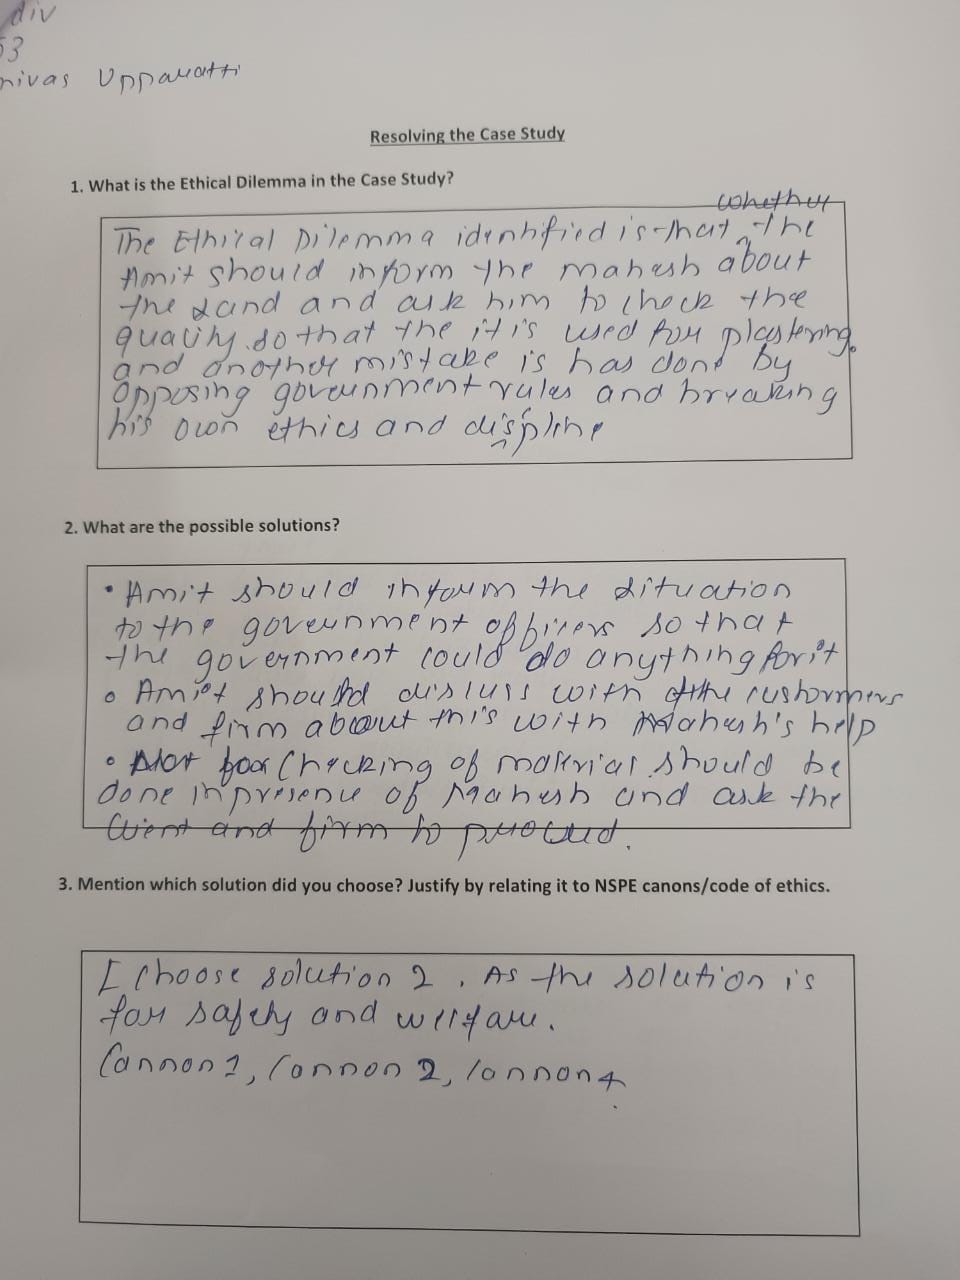 div
53
nivas Uppauatti
Resolving the Case Study
1. What is the Ethical Dilemma in the Case Study?
whether
The Ethical Dilemma identified is that ^ the
Amit should inform the mahesh about
the sand and ask him to check the
quality. so that the it is used for plastering.
and another mistake is has done by
Opposing government rules and breaking
his own ethics and displine
2. What are the possible solutions?
• Amit should inform the situation
to the government officers so that
the government could do anything for it
• Amit should discuss with the customers
and firm about this with Mahesh's help
• Checking of material should be
done in presence of Mahesh and ask the
Client and firm to proceed.
3. Mention which solution did you choose? Justify by relating it to NSPE canons/code of ethics.
I Choose solution 2. As the solution is
for safety and welfare.
Cannon 1, Cannon 2, Cannon 4